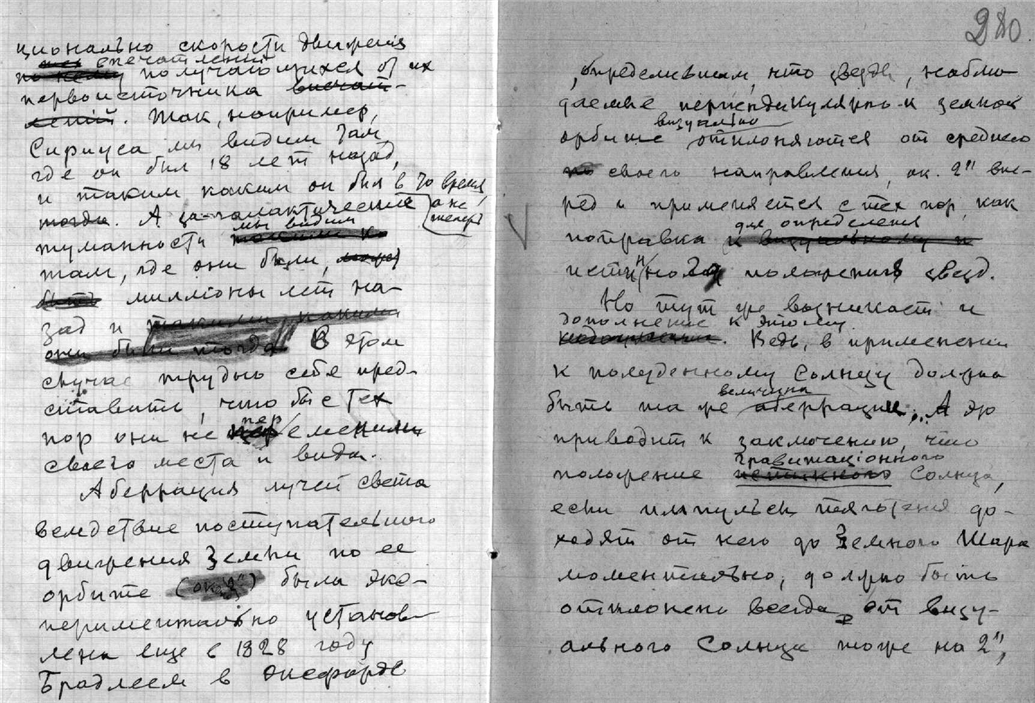 ционально скорости движения
впечатлений
получающихся от их
первоисточника
. Так, например,
Сириуса мы видим там,
где он был 18 лет назад,
и таким каким он был в то время,
а не теперь
тогда. А за-галактические
мы видим
туманности
там, где они были,
миллионы лет на-
зад и такими, какими
они были тогда В этом
случае трудно себе пред-
ставить, что бы с тех
пор они не переменили
своего места и вида.
Аберрация лучей света
вследствие поступательного
движения Земли по ее
орбите (ок. 2") была экс-
периментально установ-
лена еще в 1828 году
Брадлеем в Оксфорде
280.
, определившим, что звезды, наблю-
даемые перпендикулярно к земной
визуально
орбите отклоняются от среднего
своего направления, ок. 2" впе-
ред и применяется с тех пор, как
для определения
поправка к визуальному и
истинного положения звезд.
Но тут же возникает и
дополнение к этому.
Ведь, в применении
к полуденному Солнцу должна
величина
быть та же аберрации, А это
приводит к заключению, что
гравитаціонного
положение истинного Солнца,
если импульсы тяготения до-
ходят от него до Земного Шара
моментально, должно быть
отклонено всегда от визу-
ального Солнца тоже на 2",